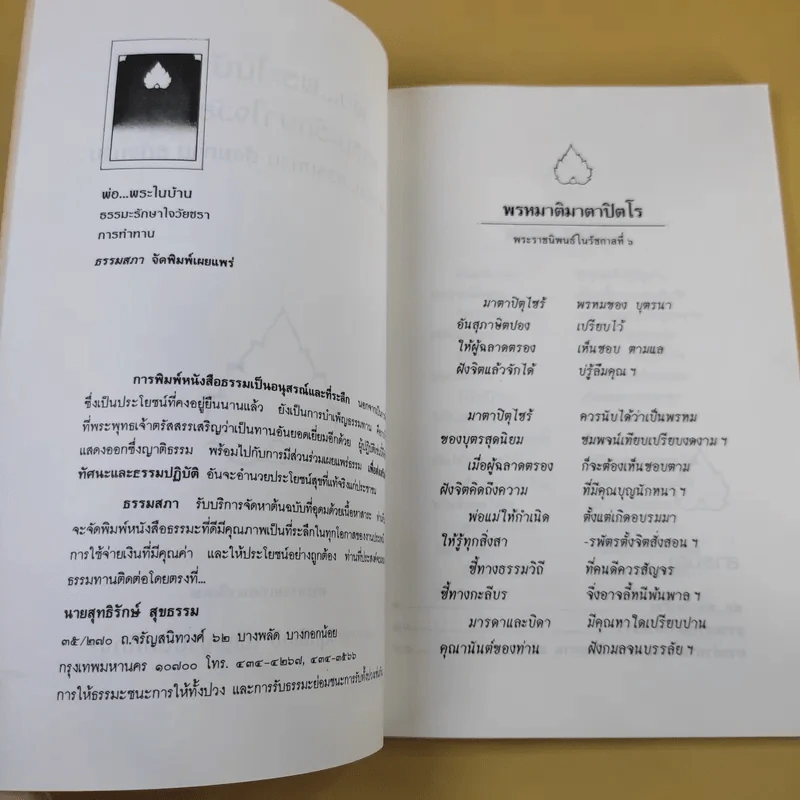 พ่อ...พระในบ้าน
ธรรมะรักษาใจวัยชรา
การทำทาน
ธรรมสภา จัดพิมพ์เผยแพร่
การพิมพ์หนังสือธรรมเป็นอนุสรณ์และที่ระลึก
ซึ่งเป็นประโยชน์ที่คงอยู่ยืนนานแล้ว ยังเป็นการบำเพ็ญธรรมทาน
ที่พระพุทธเจ้าตรัสสรรเสริญว่าเป็นทานอันยอดเยี่ยมอีกด้วย
แสดงออกซึ่งญาติธรรม พร้อมไปกับการมีส่วนร่วมเผยแพร่ธรรม
ทัศนะและธรรมปฏิบัติ อันจะอำนวยประโยชน์สุขที่แท้จริงแก่ประชาชน
ธรรมสภา รับบริการจัดหาต้นฉบับที่อุดมด้วยเนื้อหาสาระ
จะจัดพิมพ์หนังสือธรรมะที่ดีมีคุณภาพเป็นที่ระลึกในทุกโอกาสของงานประเพณี
การใช้จ่ายเงินที่มีคุณค่า และให้ประโยชน์อย่างถูกต้อง
ธรรมทานติดต่อโดยตรงที่...
นายสุทธิรักษ์ สุขธรรม
๓๕/๒๗๐ ถ.จรัญสนิทวงศ์ ๖๒ บางพลัด บางกอกน้อย
กรุงเทพมหานคร ๑๐๗๐๐ โทร. ๔๓๔-๔๒๖๗, ๔๓๔-๓๕๖๖
การให้ธรรมะชนะการให้ทั้งปวง และการรับธรรมะย่อมชนะการรับทั้งปวง
พรหมาติมาตาปิตโร
พระราชนิพนธ์ในรัชกาลที่ ๖
มาตาปิตุไซร้ พรหมของ บุตรนา
อันสุภาษิตปอง เปรียบไว้
ให้ผู้ฉลาดตรอง เห็นชอบ ตามแล
ฝังจิตแล้วจักได้ บ่รู้ลืมคุณ ฯ
มาตาปิตุไซร้ ควรนับได้ว่าเป็นพรหม
ของบุตรสุดนิยม ชมพจน์เทียบเปรียบงดงาม ฯ
เมื่อผู้ฉลาดตรอง ก็จะต้องเห็นชอบตาม
ฝังจิตคิดถึงความ ที่มีคุณบุญนักหนา ฯ
พ่อแม่ให้กำเนิด ตั้งแต่เกิดอบรมมา
ให้รู้ทุกสิ่งสา -รพัตรตั้งจิตสั่งสอน ฯ
ชี้ทางธรรมวิถี ที่คนดีควรสัญจร
ชี้ทางกะลีบร จึ่งอาจลี้หนีพ้นพาล ฯ
มารดาและบิดา มีคุณหาใดเปรียบปาน
คุณานันต์ของท่าน ฝังกมลจนบรรลัย ฯ